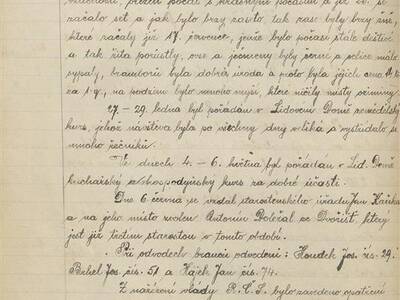 začalo set a jak bylo brzy zaseto, tak zase byly brzy žně,
které začaly již 17. července, jenže bylo počasí stále deštivé
a tak žita porůstly, oves a ječmeny byly černé a pšenice málo
sypaly, bramborů byla dobrá úroda a proto byla jejich cena
za 1 q., na podzim bylo mnoho myší, které ničily místy ozimy.
27. - 29. ledna byl pořádán v Lidovém Domě zemědělský
kurs, jehož návštěva byla po všechny dny veliká a vystřídalo se
mnoho řečníků.
Ve dnech 4. - 6. května byl pořádán v Lid. Domě
kuchařský a hospodyňský kurs za dobré účasti.
Dne 6. června se vzdal starostenského úřadu Jan
a na jeho místo zvolen Antonín Doležal ze Dvořiště, který
jest již třetím starostou v tomto období.
Při odvodech branci odvedeni: Houdek Jos. čís. 29.
Jos. čís. 51 a Hájek Jan čís. 74.
Z nařízení vlády R. Č. S. bylo zavedeno opatření